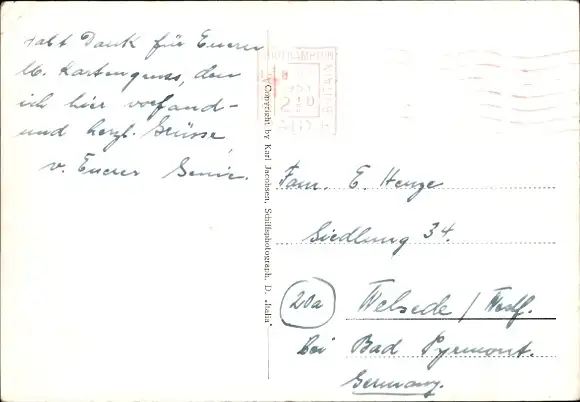 Habt Dank für Eueren
lb. Kartengruss, den
ich hier vorfand -
und herzl. Grüsse,
v. Euerer
SOUTHAMPTON
BRITAIN
2½D
PAID
Copyright by Karl Jacobsen, Schiffsphotograph, D. „Italia"
Fam. E. Henze
Siedlung 34.
20a Welsede / Westf.
bei Bad Pyrmont.
Germany.